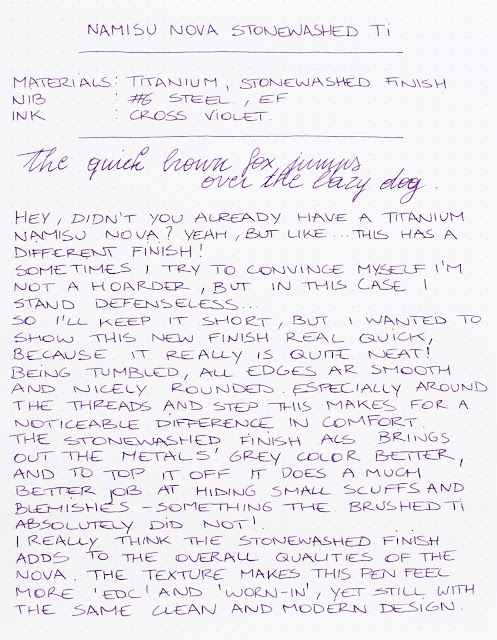 NAMISU NOVA STONEWASHED Ti
MATERIALS : TITANIUM, STONEWASHED FINISH
NIB : #6 STEEL, EF
INK : CROSS VIOLET.
the quick brown fox jumps
over the lazy dog.
HEY, DIDN'T YOU ALREADY HAVE A TITANIUM
NAMISU NOVA? YEAH, BUT LIKE... THIS HAS A
DIFFERENT FINISH!
SOMETIMES I TRY TO CONVINCE MYSELF I'M
NOT A HOARDER, BUT IN THIS CASE I
STAND DEFENSELESS...
SO I'LL KEEP IT SHORT, BUT I WANTED TO
SHOW THIS NEW FINISH REAL QUICK,
BECAUSE IT REALLY IS QUITE NEAT!
BEING TUMBLED, ALL EDGES AR SMOOTH
AND NICELY ROUNDED. ESPECIALLY AROUND
THE THREADS AND STEP THIS MAKES FOR A
NOTICEABLE DIFFERENCE IN COMFORT.
THE STONEWASHED FINISH ALS BRINGS
OUT THE METALS' GREY COLOR BETTER,
AND TO TOP IT OFF IT DOES A MUCH
BETTER JOB AT HIDING SMALL SCUFFS AND
BLEMISHES - SOMETHING THE BRUSHED Ti
ABSOLUTELY DID NOT!
I REALLY THINK THE STONEWASHED FINISH
ADDS TO THE OVERALL QUALITIES OF THE
NOVA. THE TEXTURE MAKES THIS PEN FEEL
MORE 'EDC' AND 'WORN-IN', YET STILL WITH
THE SAME CLEAN AND MODERN DESIGN.